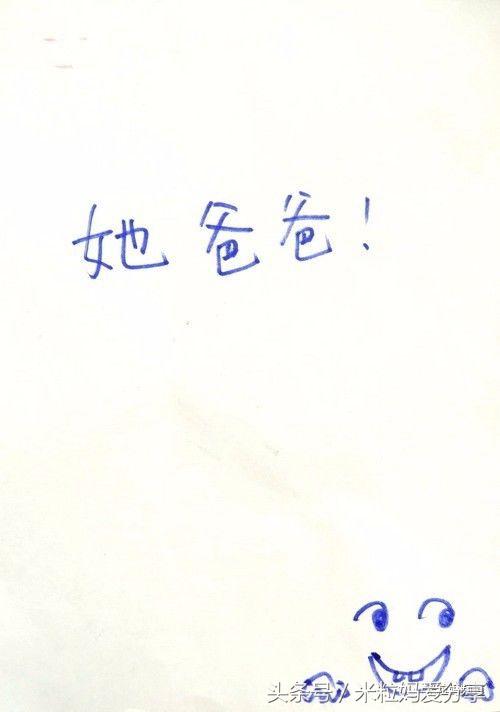 她爸爸！
头条号/米粒妈爱分享